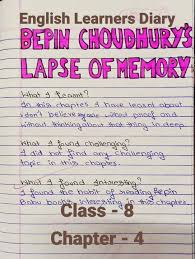 English Learners Diary
BEPIN CHOUDHURY'S
LAPSE OF MEMORY
What I learnt?
In this chapter I have learnt about
I don't believe anyone without proof and
without thinking about that thing in deep.
What I found challenging?
I did not find any challenging
topic in this chapter.
What I found Interesting?
I found the habit of reading Bepin
Babu books interesting in this chapter.
Class - 8
Chapter - 4